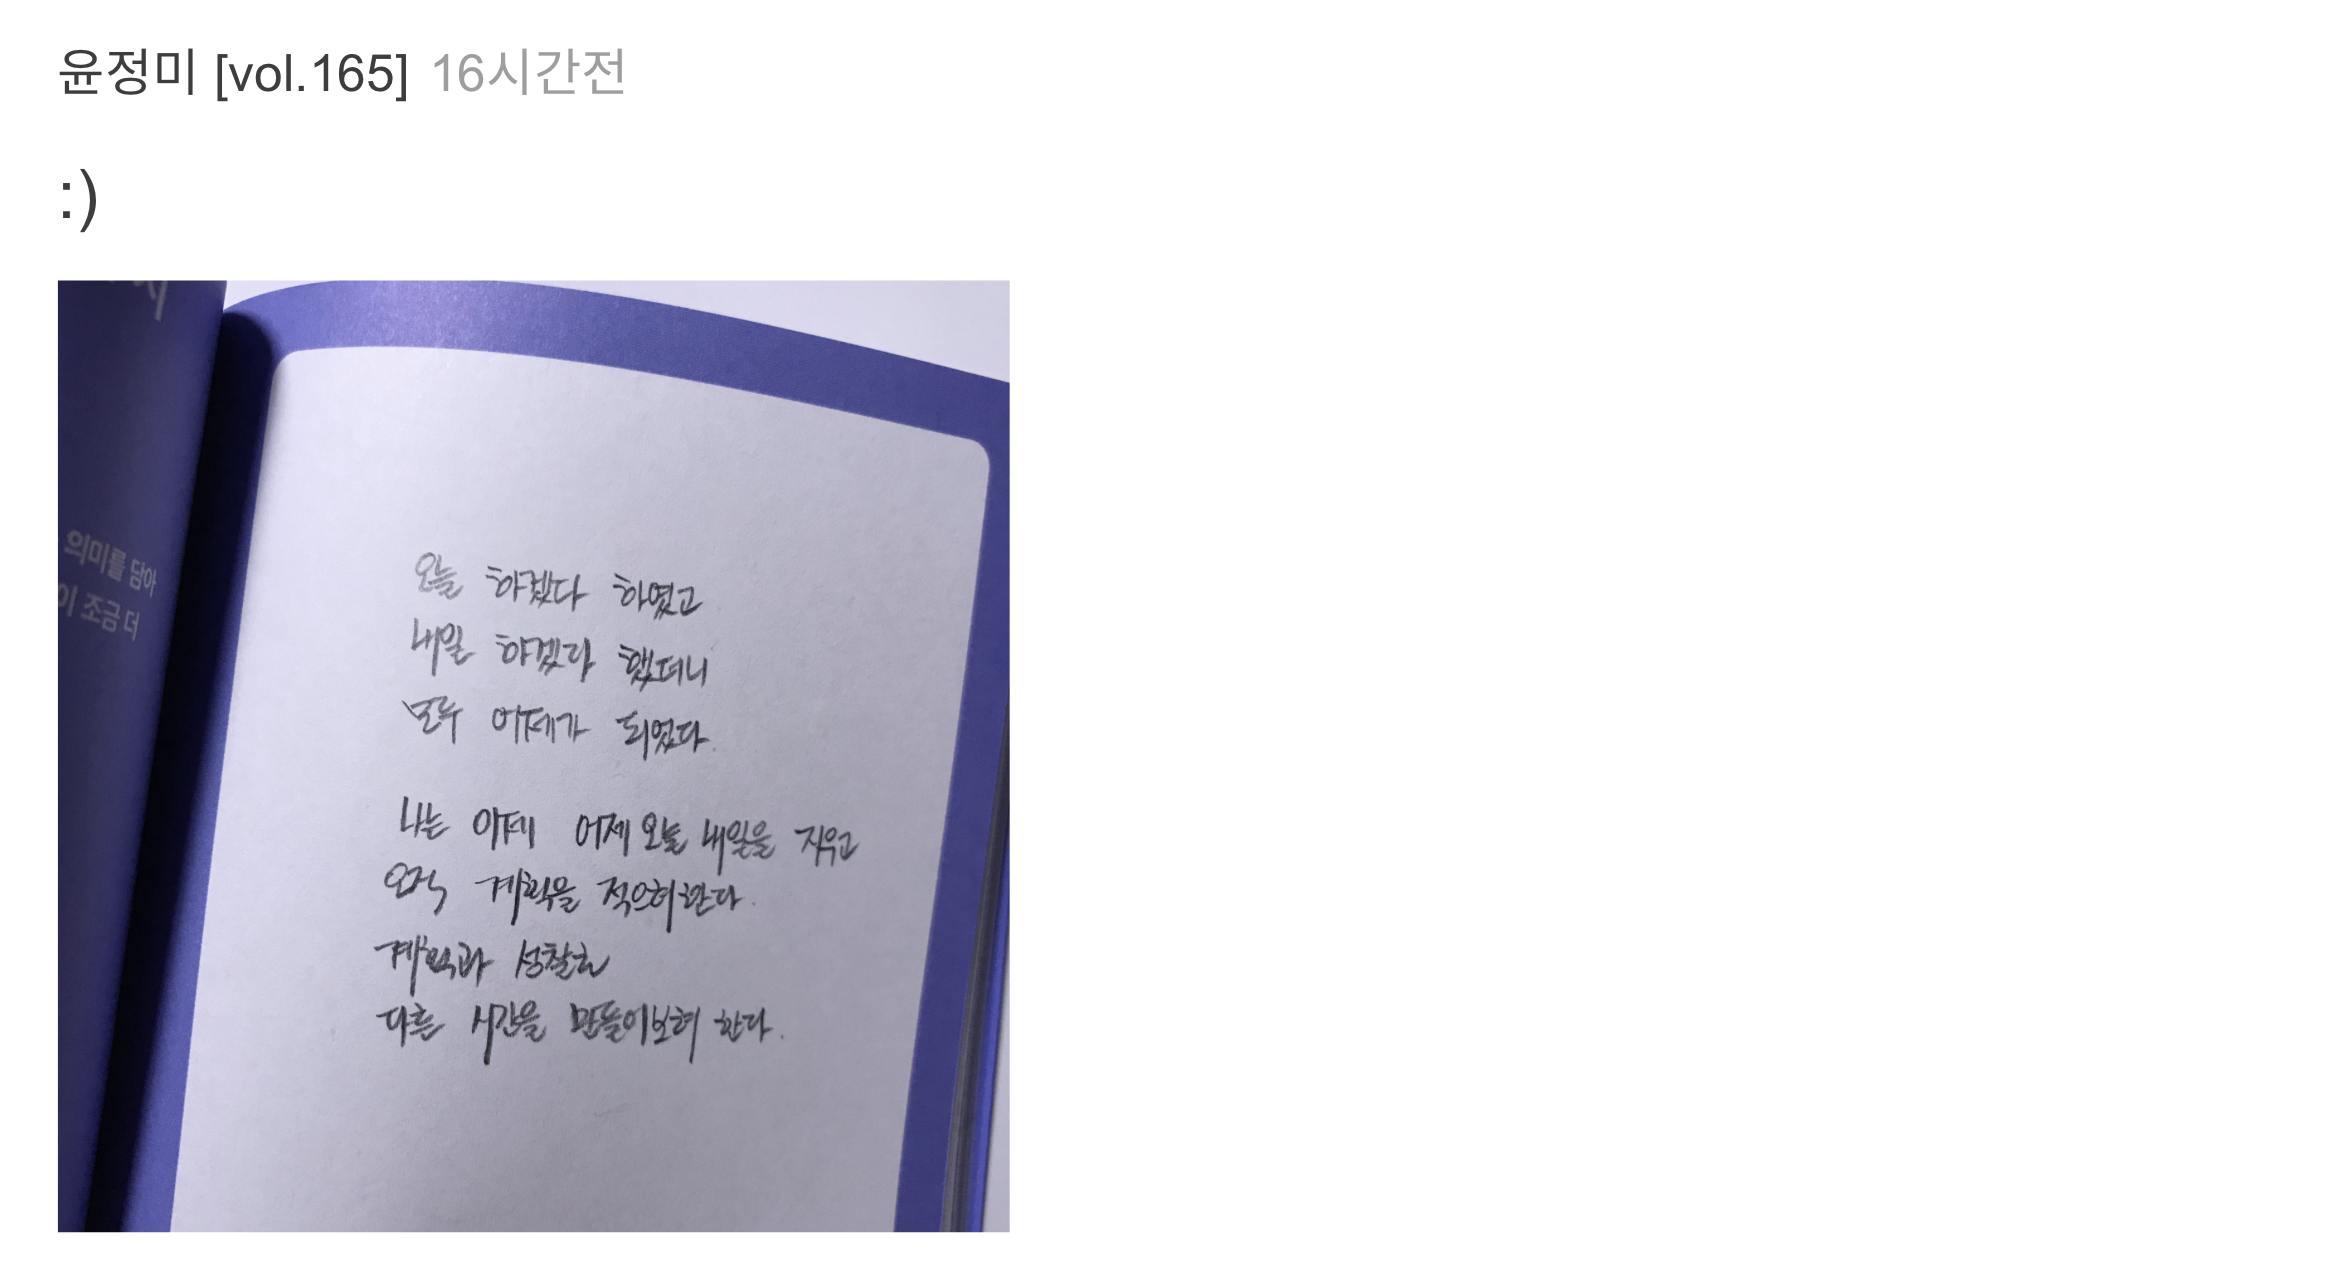 윤정미 [vol.165] 16시간전
:)
의미를 담아
이 조금 더
오늘 하겠다 하였고
내일 하겠다 했더니
모두 어제가 되었다.
나는 이제 어제 오늘 내일을 지우고
오직 계획을 적으려 한다.
계획과 성찰로
다른 시간을 만들어보려 한다.